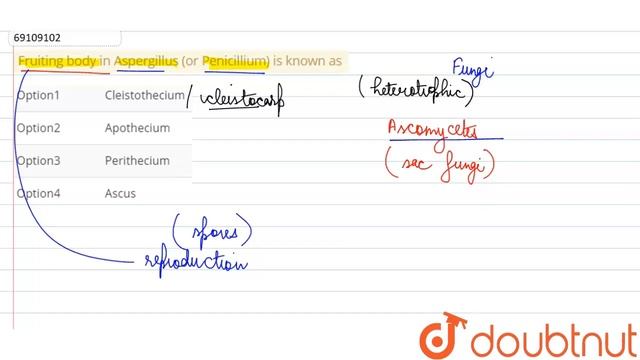 69109102
Fruiting body in Aspergillus (or Penicillium) is known as
Option1 Cleistothecium / cleistocarp
Option2 Apothecium
Option3 Perithecium
Option4 Ascus
Fungi
(heterotrophic)
Ascomycetes
(sac fungi)
(spores)
reproduction
doubtnut